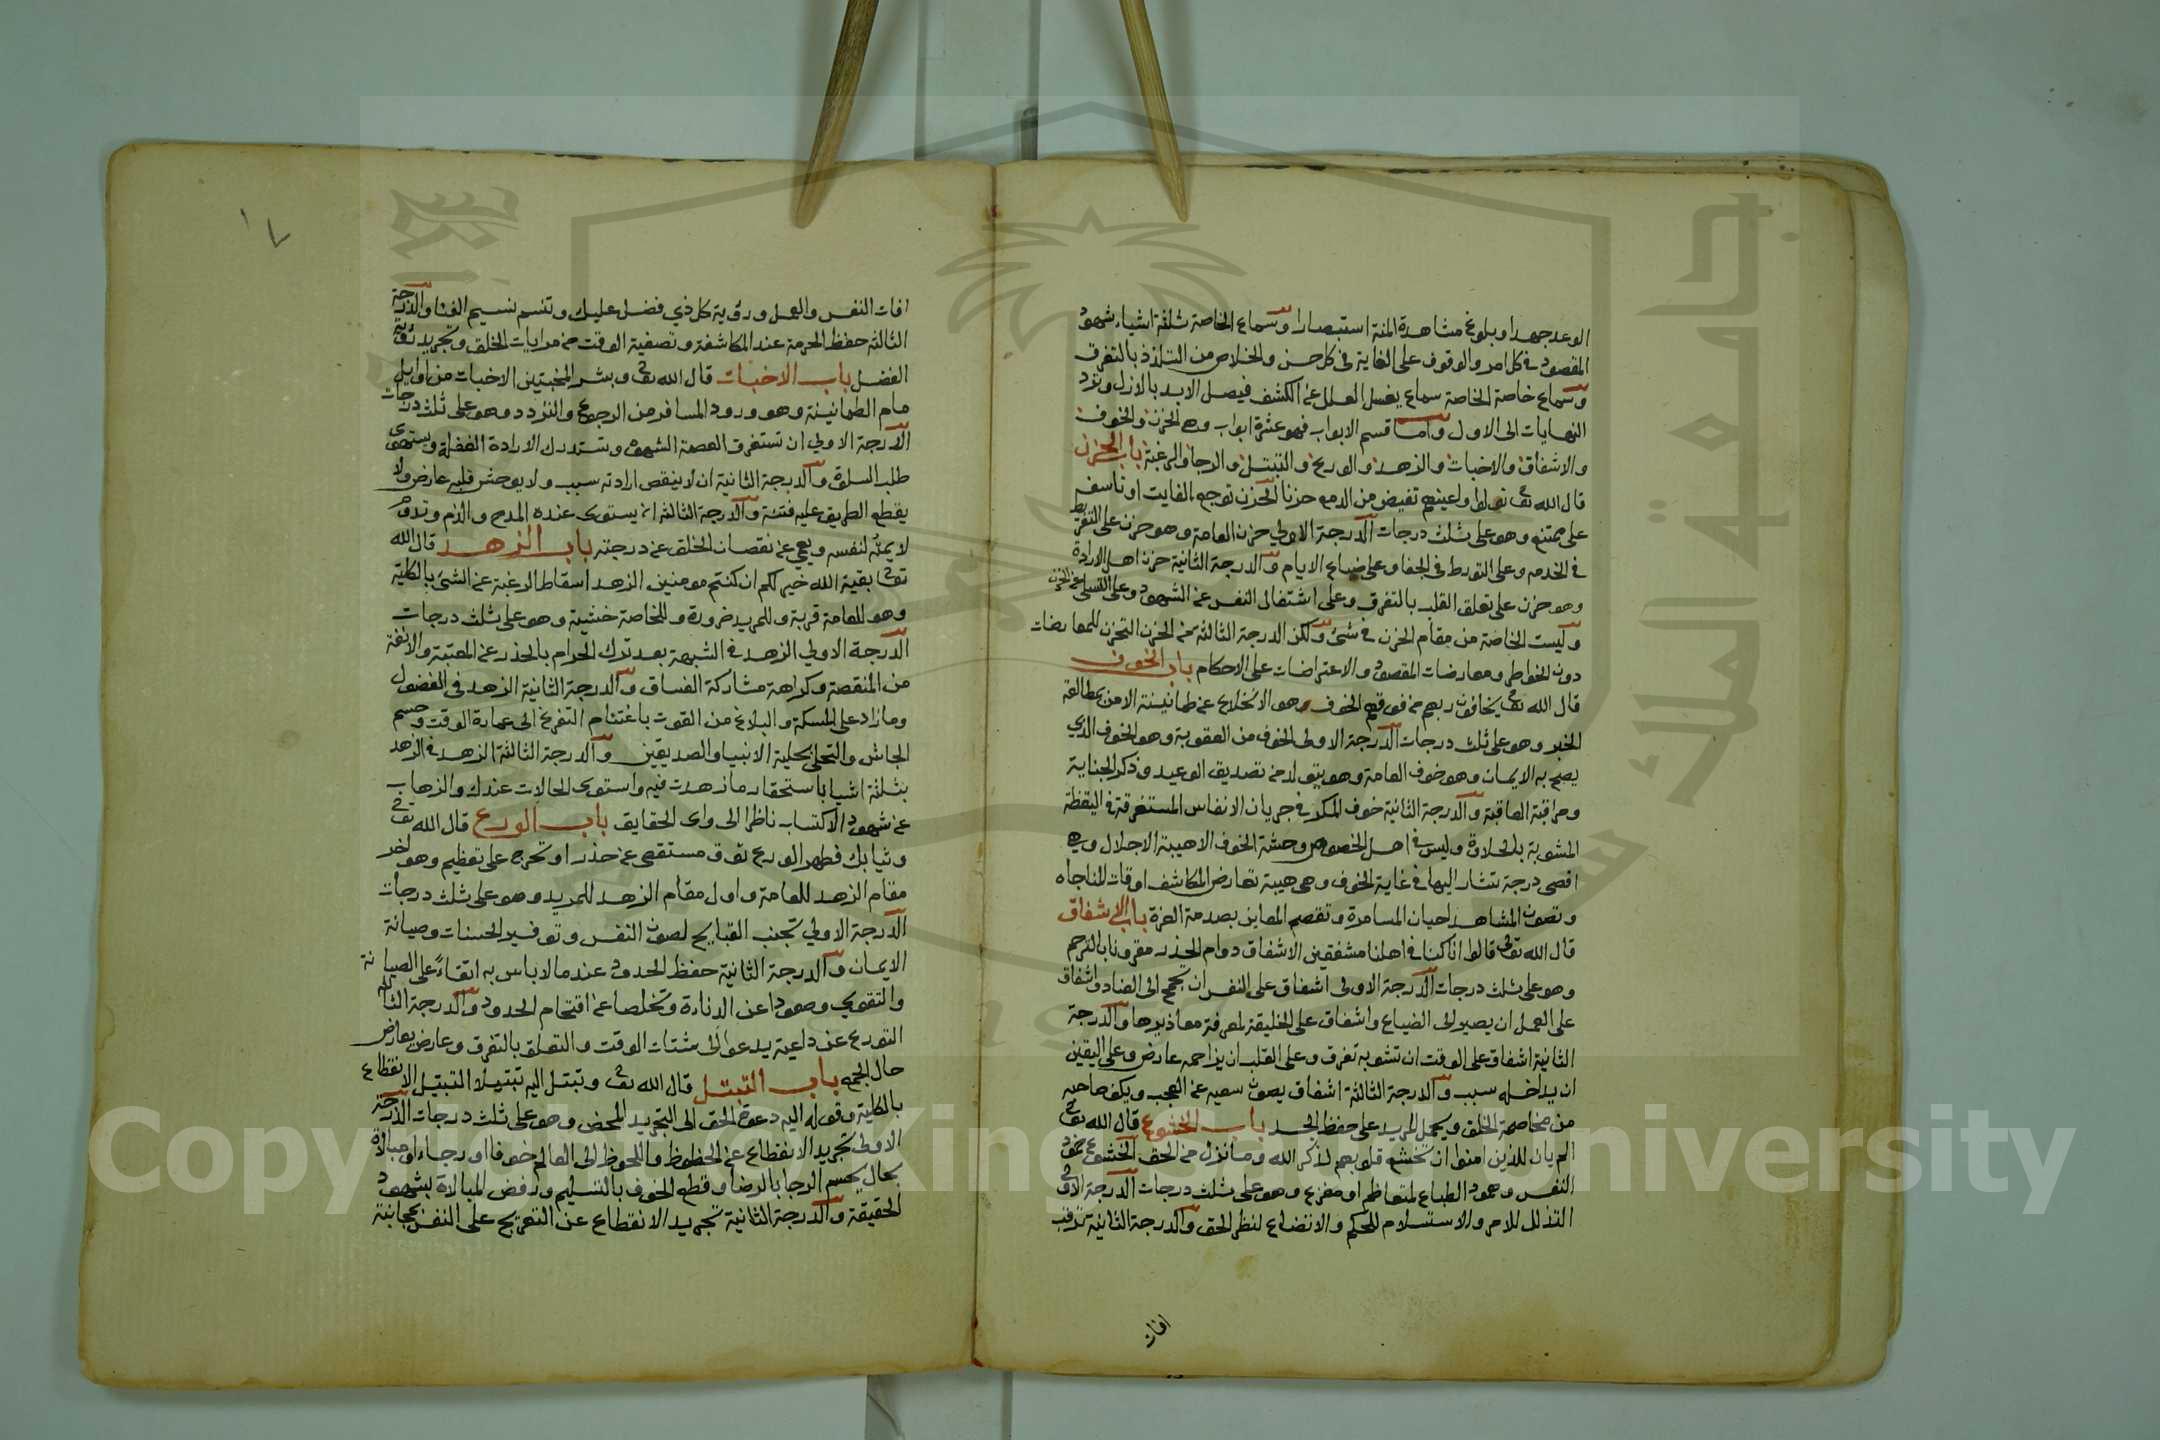 الوعد جهدا وبلوغ مشاهدة المنة استبصارا وسماع الخاصة ثلثة اشياء شهود
المقصود في كل امر والوقوف على الغاية في كل حسن والخلاص من التلذذ بالتفرق
وسماع خاصة الخاصة سماع يغسل العلل عن الكشف فيصل الابد بالازل وترد
النهايات الى الاول واما قسم الابواب فهو عشرة ابواب وهي الحزن والخوف
والاشفاق والاخبات والزهد والورع والتبتل والرجا والرغبة باب الحزن
قال الله تعالى تولوا واعينهم تفيض من الدمع حزنا الحزن توجع الفايت او تاسف
على ممتنع وهو على ثلث درجات الدرجة الاولى حزن العامة وهو حزن على التفريط
في الخدمه وعلى التورط في الجفا وعلى ضياع الايام والدرجة الثانية حزن اهل الارادة
وهو حزن على تعلق القلب بالتفرق وعلى اشتغال النفس عن الشهود وعلى التسلي عن الحزن
وليست الخاصة من مقام الحزن في شئ ولكن الدرجة الثالثة من الحزن التحزن للمعارضات
دون الخواطر ومعارضات المقصود والاعتراضات على الاحكام باب الخوف
قال الله تعالى يخافون ربهم من فوقهم الخوف هو الانخلاع عن طمانينة الامن بمطالعة
الخبر وهو على ثلث درجات الدرجة الاولى الخوف من العقوبة وهو الخوف الذي
يصح به الايمان وهو خوف العامة وهو يتولد من تصديق الوعيد وذكر الجناية
ومراقبة العاقبة والدرجة الثانية خوف المكر في جريان الانفاس المستغرقة في اليقظة
المشوبة بالحلاوة وليس في اهل الخصوص وحشة الخوف الا هيبة الاجلال وهي
اقصى درجة تشار اليها في غاية الخوف وهي هيبة تعارض المكاشف اوقات المناجاه
وتصون المشاهد احيان المسامرة وتقصم المعاين بصدمة العزة باب الاشفاق
قال الله تعالى قالوا انا كنا في اهلنا مشفقين الاشفاق دوام الحذر مقرونا بالترحم
وهو على ثلث درجات الدرجة الاولى اشفاق على النفس ان تجمح الى العناد واشفاق
على العمل ان يصير الى الضياع واشفاق على الخليقة لمعرفة معاذيرها والدرجة
الثانية اشفاق على الوقت ان تشوبه تفرق وعلى القلب ان يزاحمه عارض وعلى اليقين
ان يداخله سبب والدرجة الثالثة اشفاق يصون سعيه عن العجب ويكف صاحبه
من مخاصمة الخلق ويحمل المريد على حفظ الحد باب الخشوع قال الله تعالى
الم يان للذين امنوا ان تخشع قلوبهم لذكر الله وما نزل من الحق الخشوع خمود
النفس وهمود الطباع لمتعاظم او مفزع وهو على ثلث درجات الدرجة الاولى
التذلل للامر والاستسلام للحكم والاتضاع لنظر الحق والدرجة الثانية ترقب
افات
١٧
افات النفس والعمل ورؤية كل ذي فضل عليك وتنسم نسيم الفنا والدرجة
الثالثة حفظ الحرمة عند المكاشفة وتصفية الوقت من مرايات الخلق وتجريد رؤية
الفضل باب الاخبات قال الله تعالى وبشر المخبتين الاخبات من اوايل
مام الطمانينة وهو ورود المسافر من الرجوع والتردد وهو على ثلث درجات
الدرجة الاولى ان تستغرق العصمة الشهوة وتستدرك الارادة الغفلة ويستهوى
طلب السلوة والدرجة الثانية ان لا ينقص ارادته سبب ولا يوحش قلبه عارض ولا
يقطع الطريق عليه فتنة والدرجة الثالثة ان يستوي عنده المدح والذم وتدوم
لايمته لنفسه ويعمي عن نقصان الخلق عن درجته باب الزهد قال الله
تعالى بقية الله خير لكم ان كنتم مومنين الزهد اسقاط الرغبة عن الشئ بالكلية
وهو للعامة قربة وللمريد ضرورة وللخاصة خشية وهو على ثلث درجات
الدرجة الاولى الزهد في الشبهة بعد ترك الحرام بالحذر عن المعتبة والانفة
من المنقصة وكراهة مشاركة الفساق والدرجة الثانية الزهد في الفضول
وما زاد على المسكة والبلاغ من القوت باغتنام التفرغ الى عمارة الوقت وحسم
الجاش والتحلي بحلية الانبيا والصديقين والدرجة الثالثة الزهد في الزهد
بثلثة اشيا باستحقار ما زهدت فيه واستوى الحالات عندك والزهاب
عن شهود الاكتساب ناظرا الى وادى الحقايق باب الورع قال الله تعالى
وثيابك فطهر الورع توق مستقصى عن حذر او تحرج على تعظيم وهو اخر
مقام الزهد للعامة واول مقام الزهد للمريد وهو على ثلث درجات
الدرجة الاولى تجنب القبايح لصون النفس وتوفير الحسنات وصيانة
الايمان والدرجة الثانية حفظ الحدود عند مالاباس به اتقاءً على الصيانة
والتقوى وصعودا عن الدناءة وتخلصا عن اقتحام الحدود والدرجة الثالثة
التورع عن داعية يدعو الى شتات الوقت والتعلق بالتفرق وعارض يعارض
حال الجمع باب التبتل قال الله تعالى وتبتل اليه تبتيلا التبتل الانقطاع
بالكلية وقوله اليه دعوة الحق الى التجريد المحض وهو على ثلث درجات الدرجة
الاولى تجريد الانقطاع عن الحظوظ واللحوظ الى العالم خوفا او رجاء او مبالاة
بحال يحسم الرجا بالرضا وقطع الخوف بالتسليم ورفض المبالاة بشهود
الحقيقة والدرجة الثانية تجريد الانقطاع عن التعريج على النفس بمجانبة
جامعة الملك سعود
Copyright © King Saud University
1957